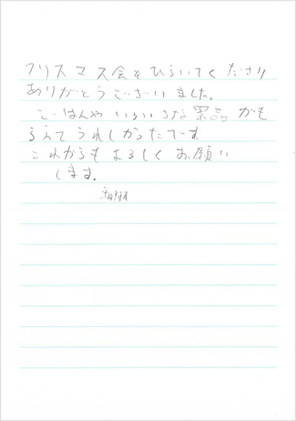 クリスマス会をひらいてくださり
ありがとうございました。
ごはんやいろいろな景品がも
らえてうれしかったです
これからもよろしくお願い
します。